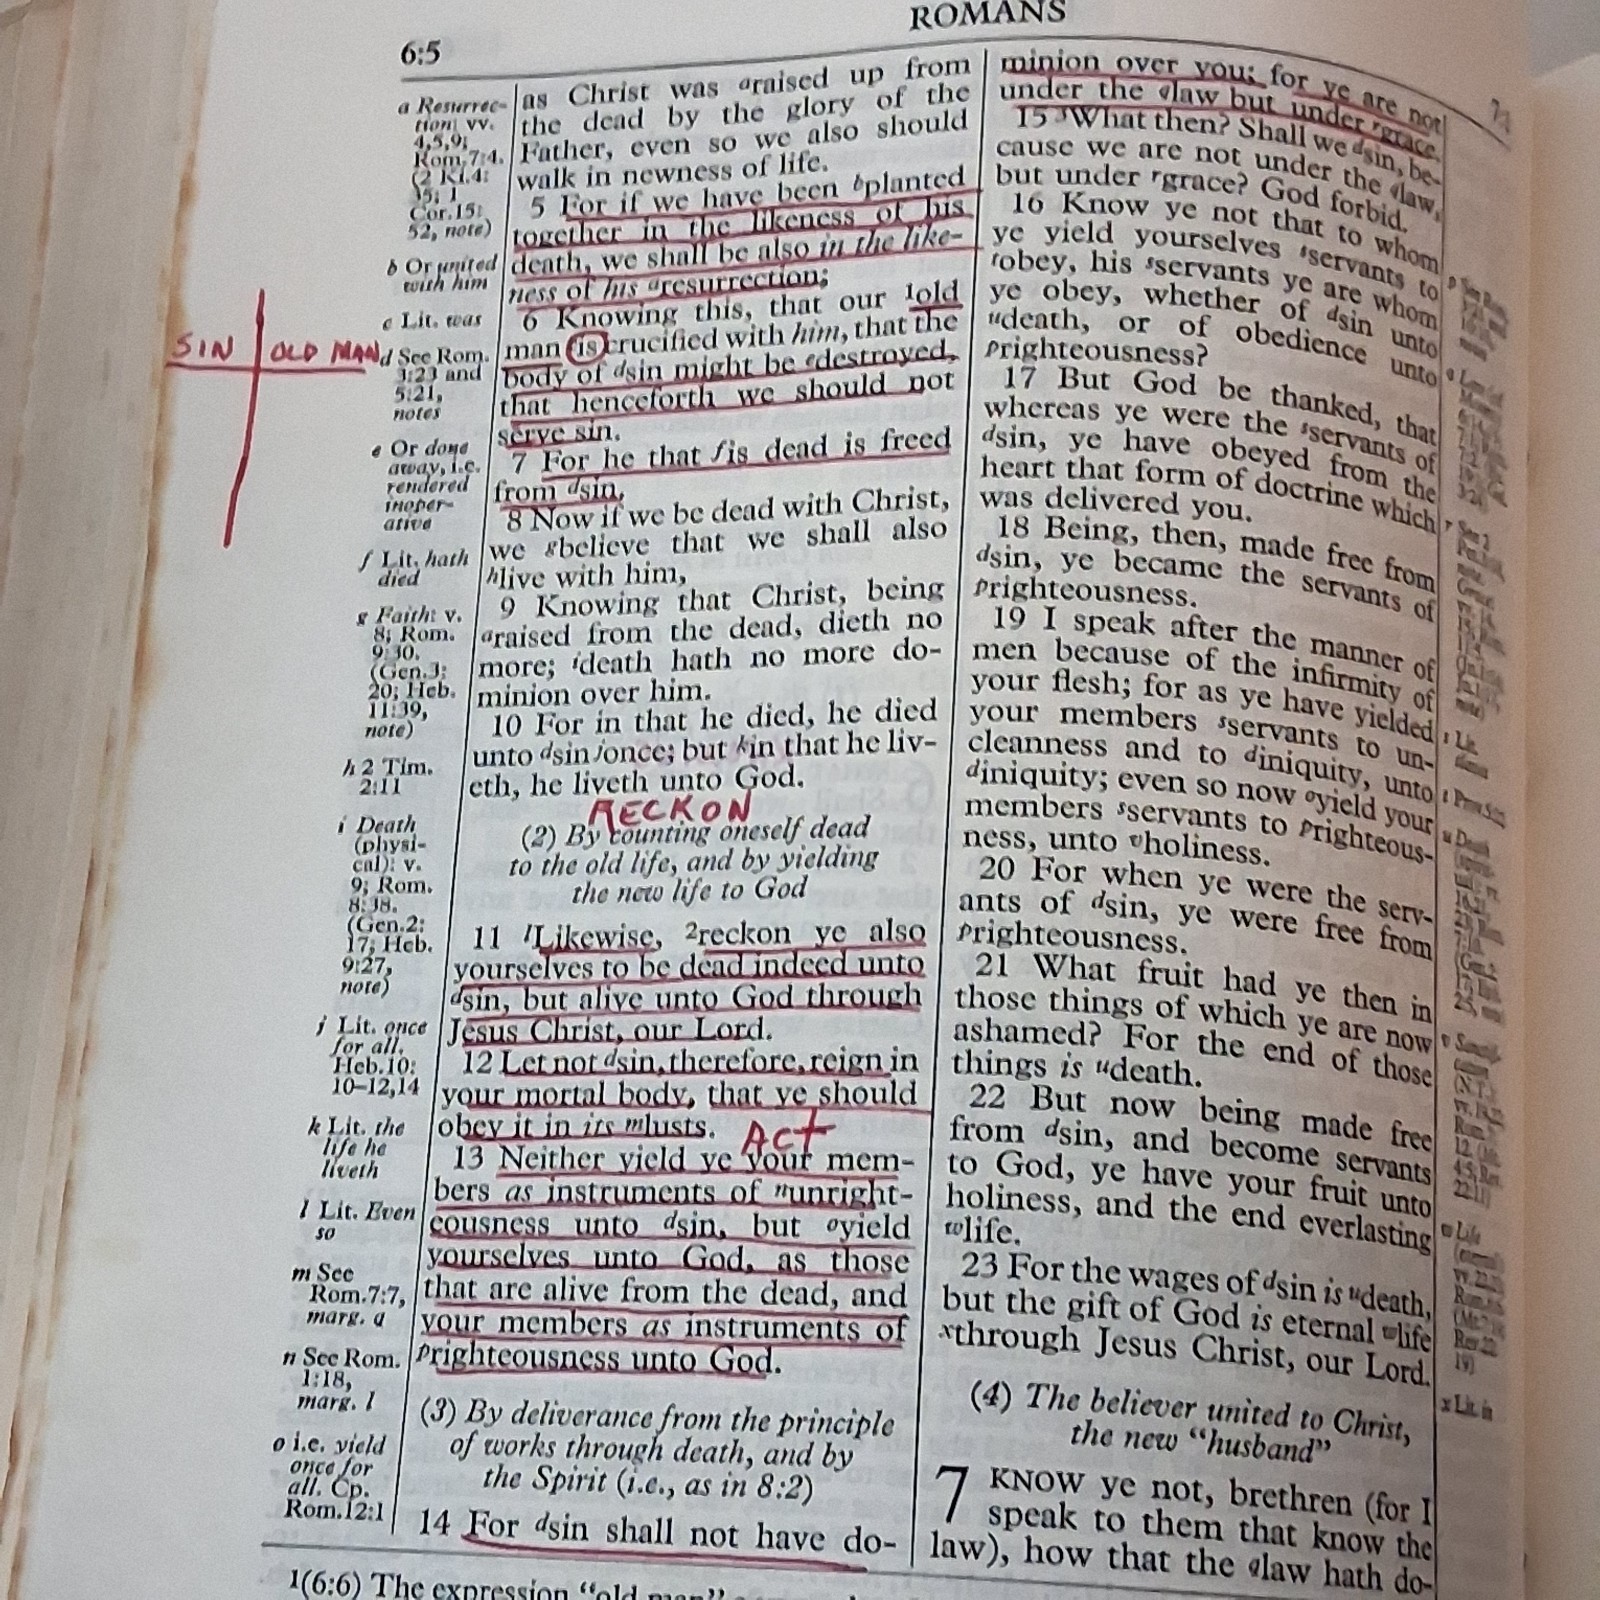 ROMANS
6:5
a Resurrec-
tion: vv.
4,5,9;
Rom.7:4.
(2 Ki.4:
35; 1
Cor.15:
52, note)
b Or united
with him
c Lit. was
SIN OLD MAN
d See Rom.
3:23 and
5:21,
notes
e Or done
away, i.e.
rendered
inoper-
ative
f Lit. hath
died
g Faith: v.
8; Rom.
9:30.
(Gen.3:
20; Heb.
11:39,
note)
h 2 Tim.
2:11
i Death
(physi-
cal): v.
9; Rom.
8:38.
(Gen.2:
17; Heb.
9:27,
note)
j Lit. once
for all.
Heb.10:
10-12,14
k Lit. the
life he
liveth
l Lit. Even
so
m See
Rom.7:7,
marg. q
n See Rom.
1:18,
marg. l
o i.e. yield
once for
all. Cp.
Rom.12:1
as Christ was araised up from
the dead by the glory of the
Father, even so we also should
walk in newness of life.
5 For if we have been bplanted
together in the likeness of his
death, we shall be also in the like-
ness of his aresurrection;
6 Knowing this, that our 1old
man cis crucified with him, that the
body of dsin might be edestroyed,
that henceforth we should not
serve sin.
7 For he that fis dead is freed
from dsin.
8 Now if we be dead with Christ,
we gbelieve that we shall also
hlive with him,
9 Knowing that Christ, being
araised from the dead, dieth no
more; ideath hath no more do-
minion over him.
10 For in that he died, he died
unto dsin jonce; but kin that he liv-
eth, he liveth unto God.
RECKON
(2) By counting oneself dead
to the old life, and by yielding
the new life to God
11 lLikewise, 2reckon ye also
yourselves to be dead indeed unto
dsin, but alive unto God through
Jesus Christ, our Lord.
12 Let not dsin, therefore, reign in
your mortal body, that ye should
obey it in its mlusts.
ACT
13 Neither yield ye your mem-
bers as instruments of nunright-
eousness unto dsin, but oyield
yourselves unto God, as those
that are alive from the dead, and
your members as instruments of
prighteousness unto God.
(3) By deliverance from the principle
of works through death, and by
the Spirit (i.e., as in 8:2)
14 For dsin shall not have do-
minion over you; for ye are not
under the qlaw but under rgrace.
15 What then? Shall we dsin, be-
cause we are not under the qlaw,
but under rgrace? God forbid.
16 Know ye not that to whom
ye yield yourselves sservants to
tobey, his sservants ye are whom
ye obey, whether of dsin unto
udeath, or of obedience unto
prighteousness?
17 But God be thanked, that
whereas ye were the sservants of
dsin, ye have obeyed from the
heart that form of doctrine which
was delivered you.
18 Being, then, made free from
dsin, ye became the servants of
prighteousness.
19 I speak after the manner of
men because of the infirmity of
your flesh; for as ye have yielded
your members sservants to un-
cleanness and to diniquity, unto
diniquity; even so now oyield your
members sservants to prighteous-
ness, unto vholiness.
20 For when ye were the serv-
ants of dsin, ye were free from
prighteousness.
21 What fruit had ye then in
those things of which ye are now
ashamed? For the end of those
things is udeath.
22 But now being made free
from dsin, and become servants
to God, ye have your fruit unto
holiness, and the end everlasting
wlife.
23 For the wages of dsin is udeath,
but the gift of God is eternal wlife
xthrough Jesus Christ, our Lord.
(4) The believer united to Christ,
the new "husband"
7 KNOW ye not, brethren (for I
speak to them that know the
law), how that the qlaw hath do-
x Lit. in
1(6:6) The expression "old man"